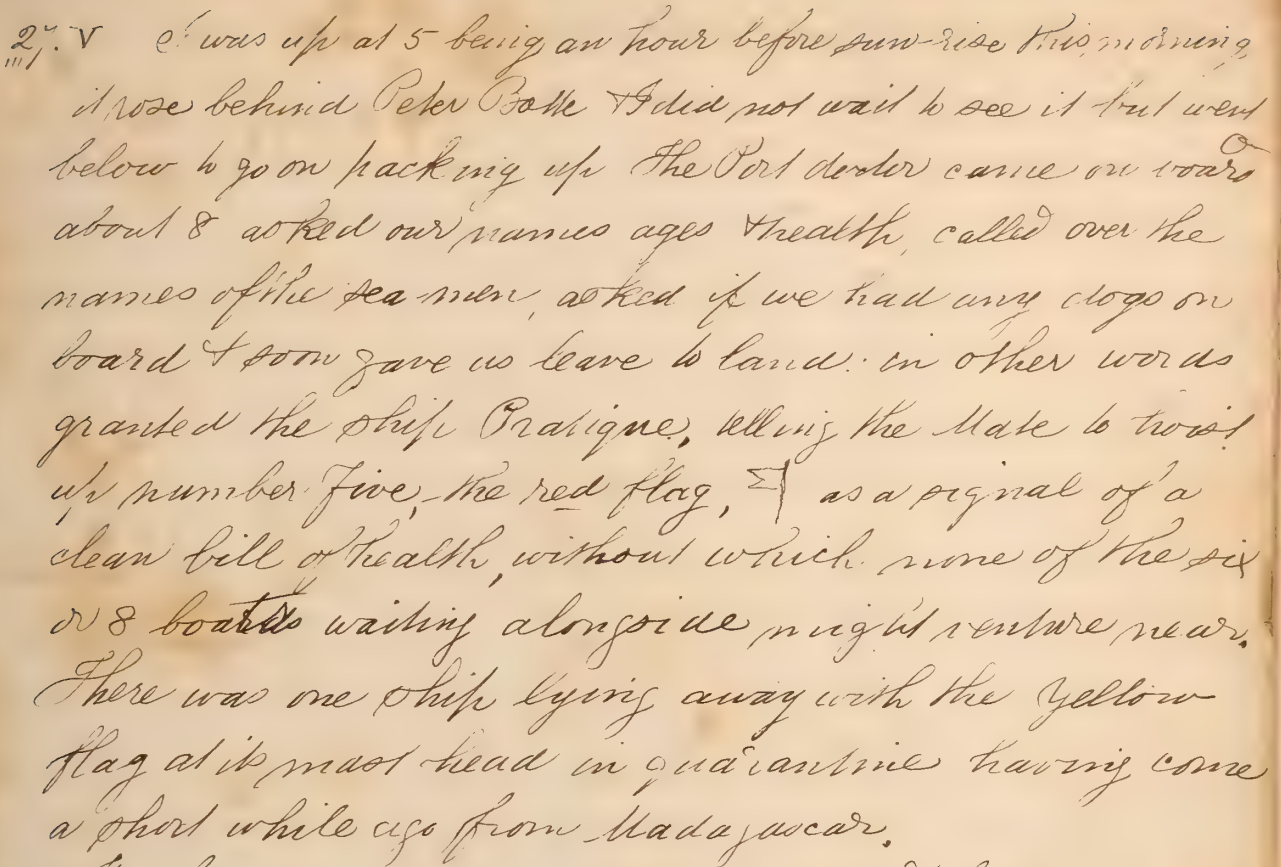 27. V I was up at 5 being an hour before sun-rise this morning
it rose behind Peter Botte & I did not wait to see it but went
below to go on packing up The Port doctor came on board
about 8 asked our names ages & health, called over the
names of the sea-men, asked if we had any dogs on
board & soon gave us leave to land: in other words
granted the ship Pratique, telling the Mate to twist
up number Five, the red flag, as a signal of a
clean bill of health, without which none of the six
or 8 boats waiting alongside might venture near.
There was one ship lying away with the Yellow
flag at its mast head in quarantine having come
a short while ago from Madagascar.